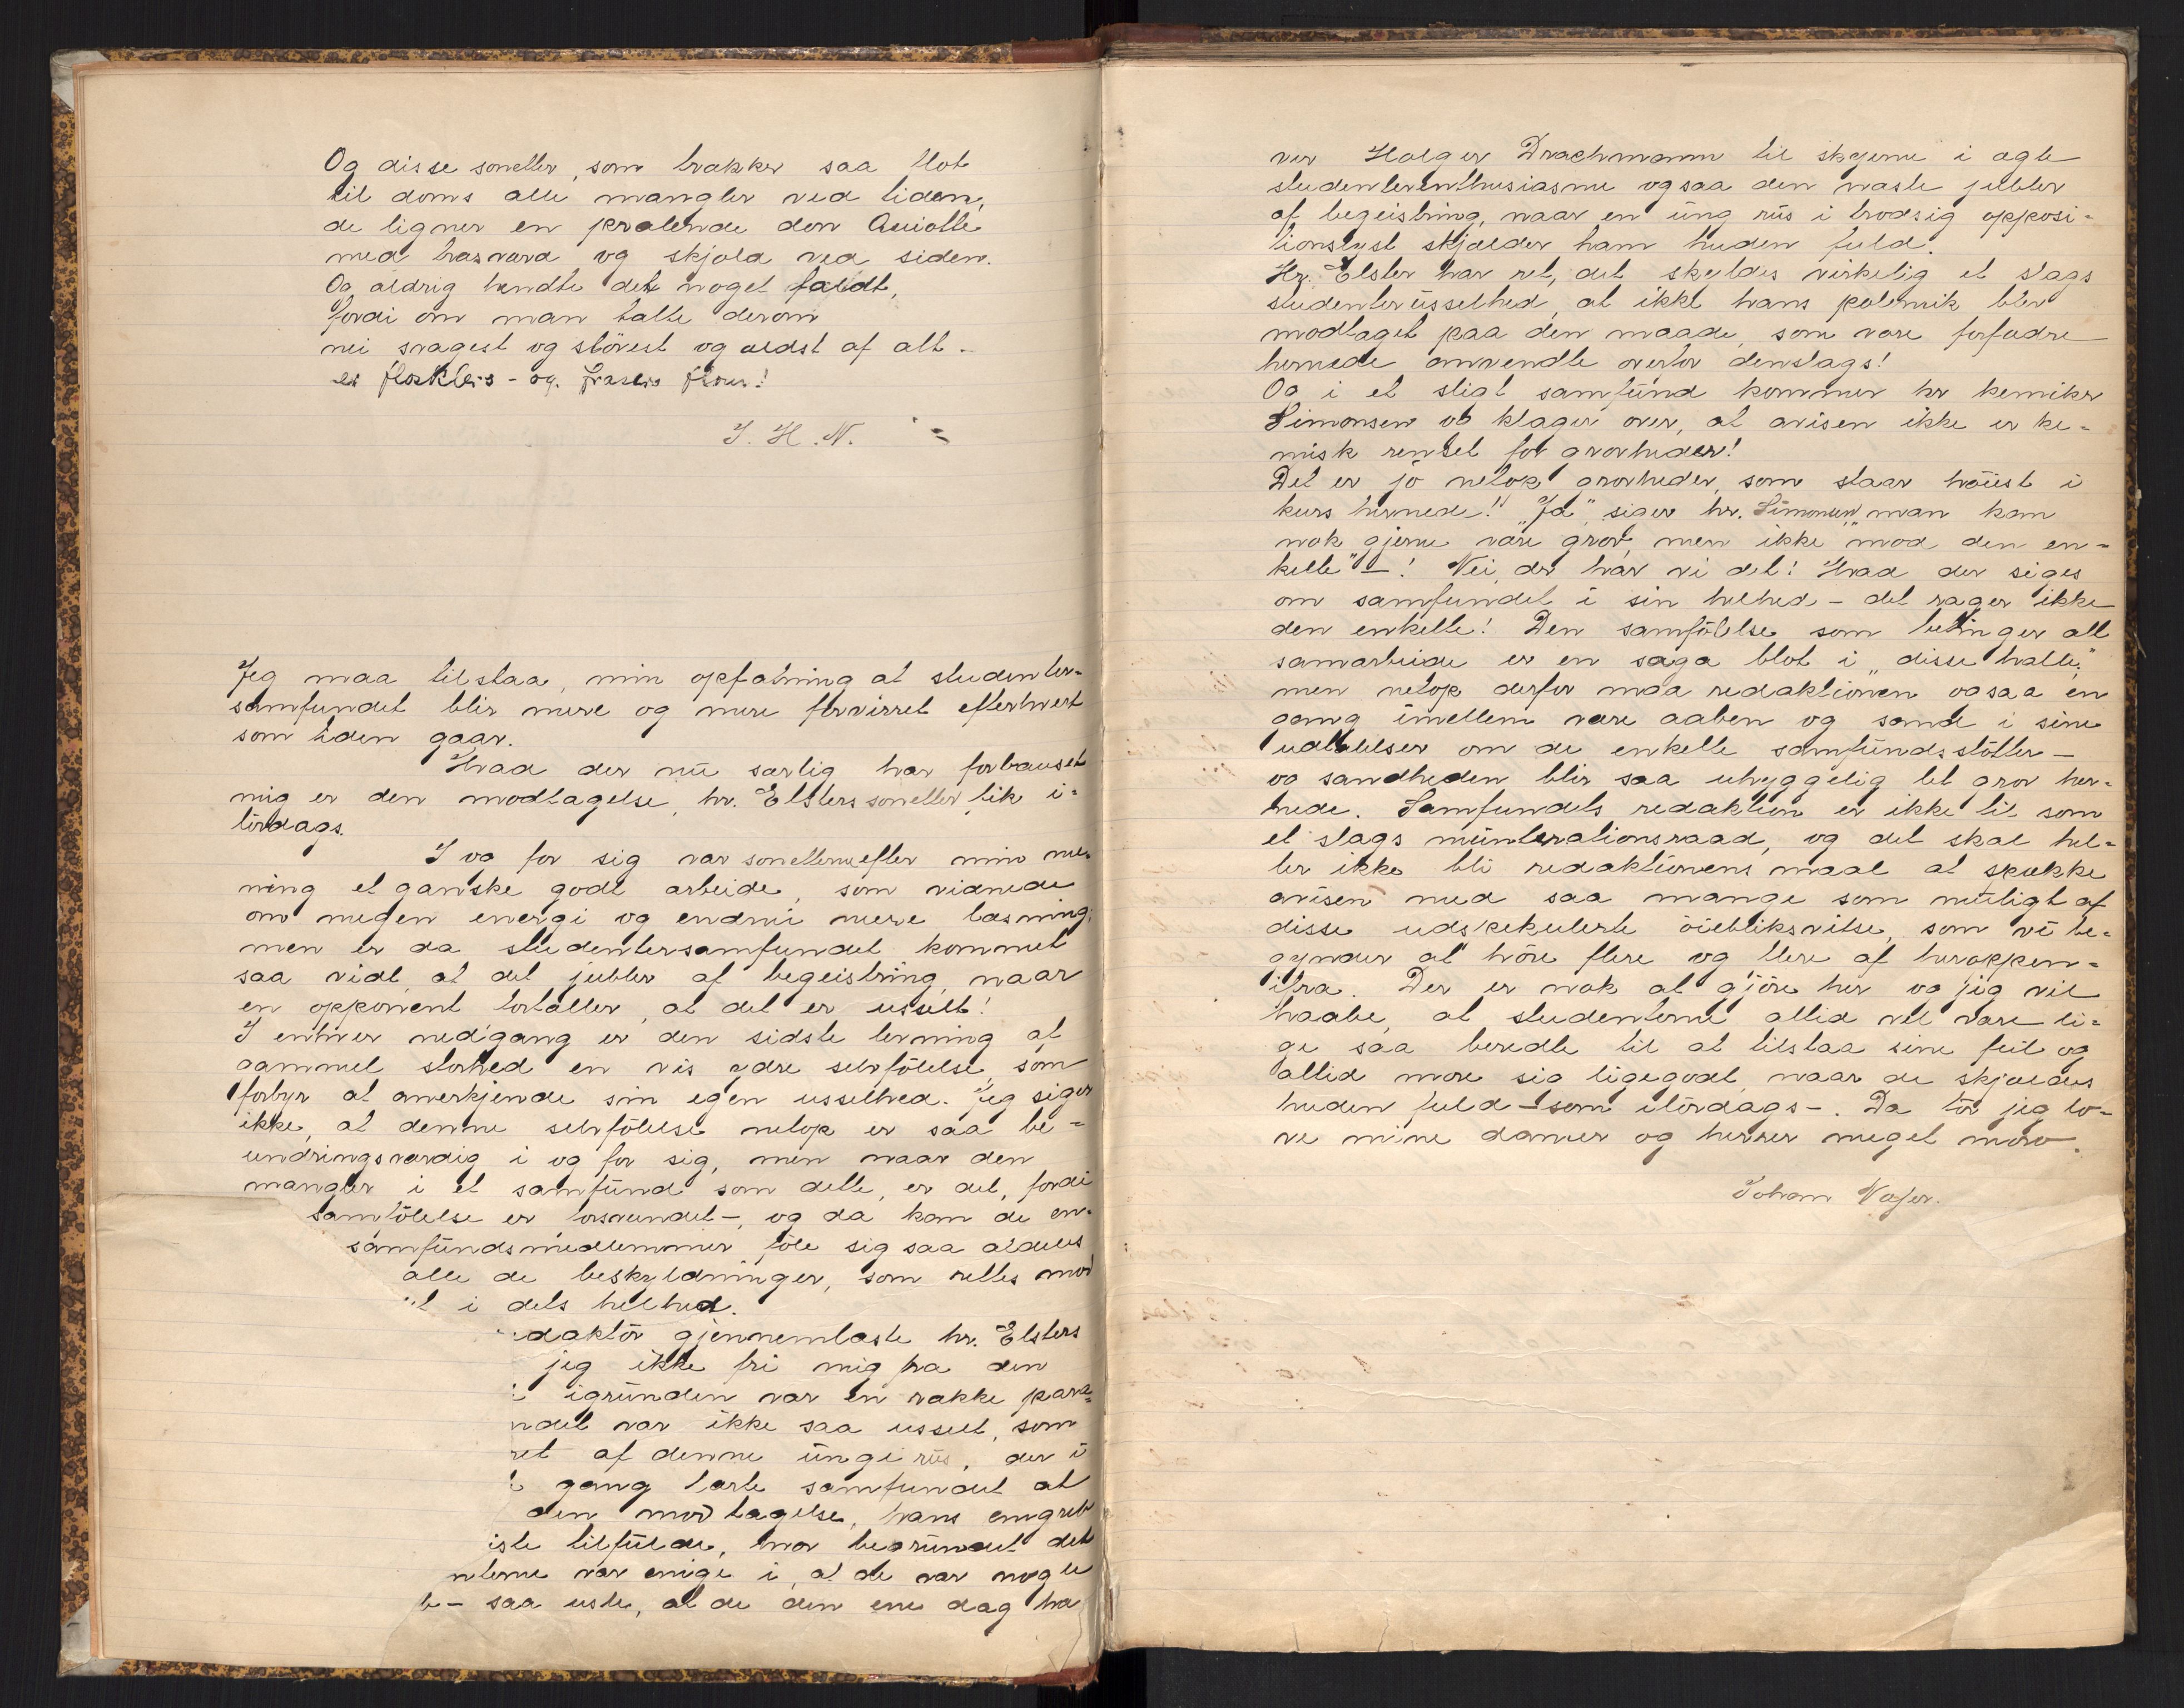 Og disse sonetter, som trækker saa flot
til doms alle mangler ved tiden,
de ligner en pralende don Quiotte
med træsværd og skjold ved siden.
Og aldrig hendte det noget faldt,
fordi om man talte derom
nei svagest og slövest og ældst af alt –
er floskleis- og frasers flom!
J. H. N.
Jeg maa tilstaa, min opfatning af studenter-
samfundet blir mere og mere forvirret efterhvert
som tiden gaar.
Hvad der nu særlig har forbauset
mig er den modtagelse, hr. Elsters sonetter fik i-
lördags.
I og for sig var sonetterne efter min me-
ning et ganske godt arbeide, som vidnede
om megen energi og endnu mere læsning;
men er da studentersamfundet kommet
saa vidt, at det jubler af begeistring, naar
en opponent fortæller, at det er usselt!
I enhver nedgang er den sidste levning af
gammel storhed en vis ydre selvfölelse, som
forbyr at anerkjende sin egen usselhed. Jeg siger
ikke, at denne selvfölelse netop er saa be-
undringsværdig i og for sig, men naar den
mangler i et samfund som dette, er det, fordi
samfölelse er forsvundet –, og da kan de en-
samfundsmedlemmer föle sig saa aldeles
alle de beskyldninger, som rettes mod
et i dets helhed.
edaktör gjennemlæste hr. Elsters
jeg ikke fri mig fra den
igrunden var en række para-
ndet var ikke saa usselt, som
ret af denne unge riis, der i
gang lærte samfundet at
den modtagelse, hans angreb
iste tilfulde, hvor begrundet det
nterne var enige i, at de var nogle
– saa usle, at de den ene dag hæ
ver Holger Drachmann til skyerne i ægte
studenterenthusiasme og saa den næste jubler
af begeistring, naar en ung riis i trodsig opposi-
tionslyst skjælder ham huden fuld.
Hr. Elster har ret, det skyldes virkelig et slags
studenterusselhed, at ikke hans polemik blev
modtaget paa den maade, som vore forfædre
hernede anvendte overfor denslags!
Og i et sligt samfund kommer hr kemiker
Simonsen og klager over, at avisen ikke er ke-
misk renset for grovheder!
Det er jo netop grovheder, som staar höiest i
kurs hernede! "Ja", siger hr. Simonsen, "man kan
nok gjerne være grov, men ikke mod den en-
kelte" –! Nei, der har vi det! Hvad der siges
om samfundet i sin helhed – det rager ikke
den enkelte! Den samfölelse som betinger alt
samarbeide er en saga blot i "disse halle",
men netop derfor maa redaktionen ogsaa en
gang imellem være aaben og sande i sine
udtalelser om de enkelte samfundsstötter –
og sandheden blir saa uhyggelig let grov her-
nede. Samfundets redaktion er ikke til som
et slags munterationsraad, og det skal hel-
ler ikke bli redaktionens maal at spække
avisen med saa mange som muligt af
disse udspekulerte öiebliksvitse, som vi be-
gynder at höre flere og flere af heroppen-
ifra. Der er nok at gjöre her og jeg vil
haabe, at studenterne altid vil være li-
ge saa beredte til at tilstaa sine feil og
altid more sig ligegodt, naar de skjældes
huden fuld – som ilördags –. Da tör jeg lo-
ve mine damer og herrer meget moro.
Johan Næser.